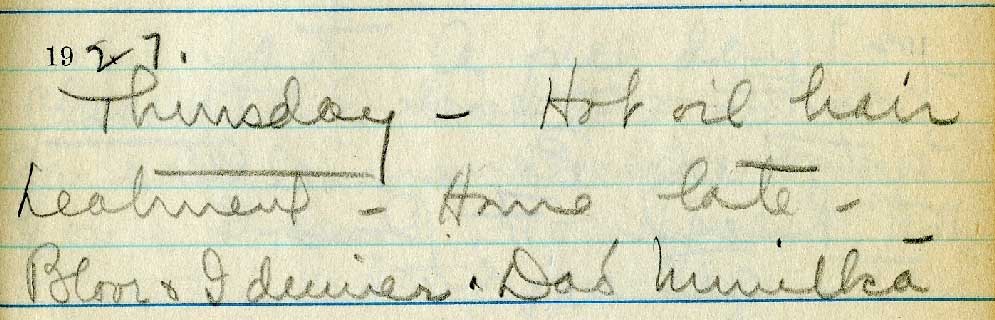 1927.
Thursday - Hot oil hair
treatment - Home late -
Bloor & I dinner. Das